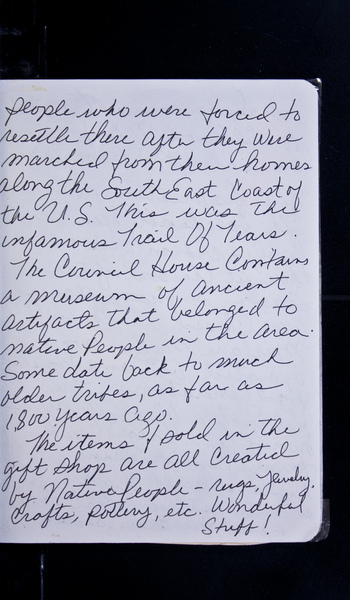 people who were forced to
resettle there after they were
marched from their homes
along the South East Coast of
the U.S. This was the
infamous Trail Of Tears.
The Council House Contains
a museum of ancient
artifacts that belonged to
native People in the area.
Some date back to much
older tribes, as far as
1800 years ago.
The items I sold in the
gift shop are all created
by Native People - rugs, jewelry,
crafts, pottery, etc. Wonderful
Stuff!